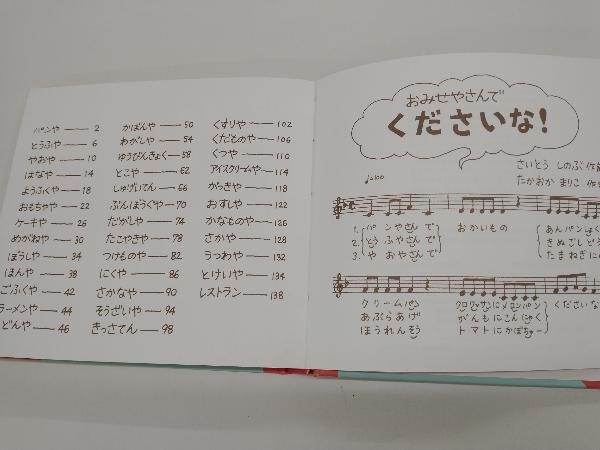 パンや 2
とうふや 6
やおや 10
はなや 14
ようふくや 18
おもちゃや 22
ケーキや 26
めがねや 30
ぼうしや 34
ほんや 38
ごふくや 42
ラーメンや 44
どんや 46
かばんや 50
わがしや 54
ゆうびんきょく 58
とこや 62
しゅげいてん 66
ぶんぼうぐや 70
だがしや 74
たこやきや 78
つけものや 82
にくや 86
さかなや 90
そうざいや 94
きっさてん 98
くすりや 102
くだものや 106
くつや 110
アイスクリームや 114
がっきや 118
おすしや 122
かなものや 126
さかや 128
うつわや 132
とけいや 134
レストラン 138
おみせやさんで
くださいな!
さいとう しのぶ 作詞
たかおか まりこ 作
♩=100
1. パンやさんで おかいもの あんパン
2. とうふやさんで きぬごし
3. やおやさんで たまねぎに
クリームパン クロワッサンにメロンパン くださいな
あぶらあげ がんもにこんにゃく
ほうれんそう トマトにかぼちゃー